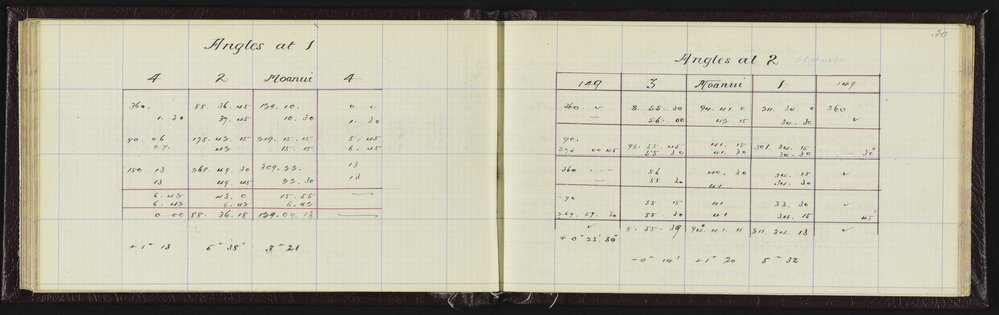 Angles at 1
4 2 Moanui 4
360. 88. 36. 45 129. 10. 0 0
1. 30 37. 45 10. 30 1. 30
90. 06 178. 42. 15 219. 15. 15 5. 45
07. 42 15. 15 6. 45
180 13 268. 49. 30 309. 22. 13
13 49. 45 22. 30 13
6. 42 43. 0 15. 55
6. 42 6. 42 6. 42
0. 00 88. 36. 18 129. 09. 13
+ 1" 13 5" 38' 3" 28
30
Angles at 2
149 3 Moanui 1 149
360 8. 55. 30 94. 41. 0 211. 34. 0 360
56. 00 42. 15 34. 30
90. 98. 55. 45 41. 15 301. 34. 15
270 00 45 55 30 41. 30 34. 30 30"
360 56 40. 30 34. 15
55. 30 41 34. 30
90 55 15 41 33. 30
267. 59. 30 55 30 41 34. 15 45'
8. 55. 39 94. 41. 11 211. 34. 13
+ 0" 23. 30"
- 0" 14' + 1" 20 5" 32